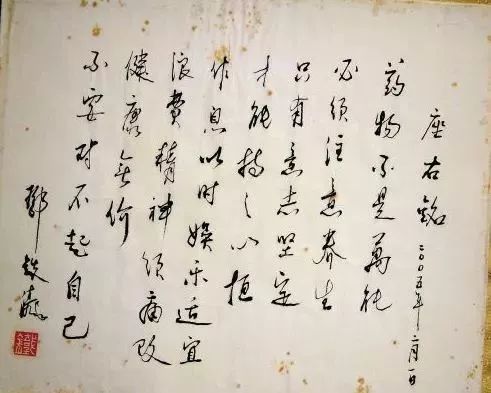 座右铭
二〇〇五年二月一日
药物不是萬能
必须注意养生
只有意志坚定
才能持之以恒
作息以时娱乐适宜
浪費精神须痛改
健康无价
不要对不起自己
鄧铁涛